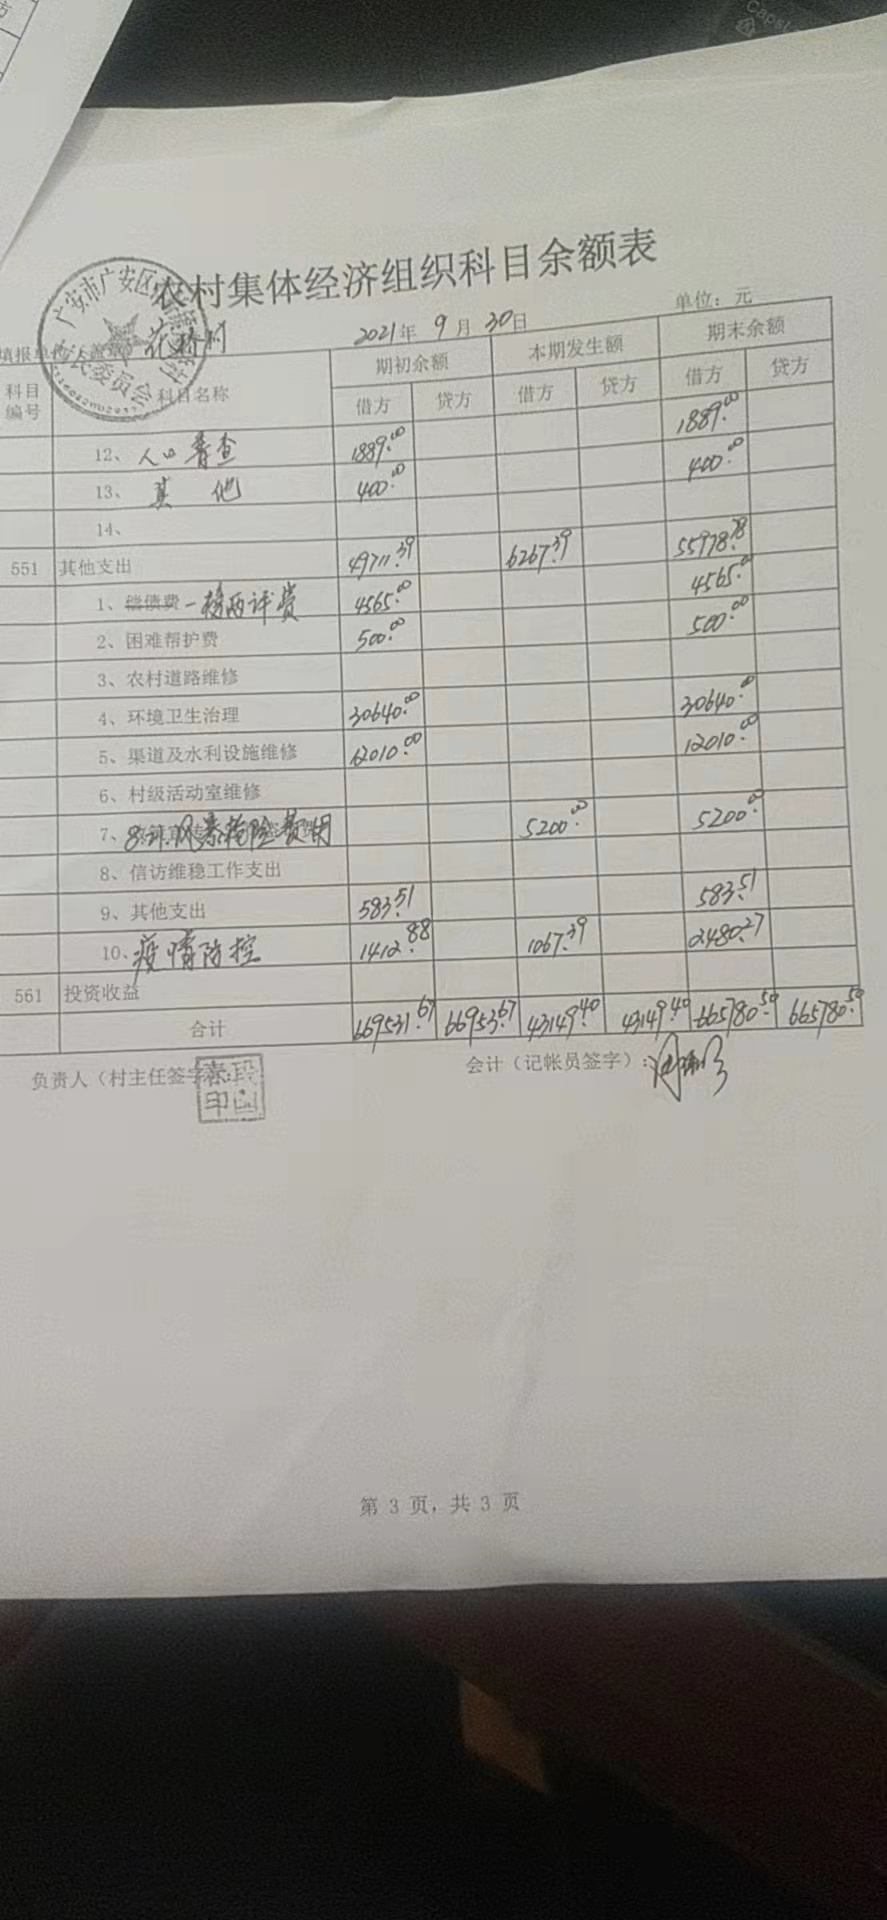 农村集体经济组织科目余额表
填报单位（盖章） 花桥村 2021年 9月 30日 单位：元
科目编号 科目名称 期初余额 本期发生额 期末余额
借方 贷方 借方 贷方 借方 贷方
12、人口普查 1889.00 1889.00
13、其他 400.00 400.00
14、
551 其他支出 49711.39 6267.39 55978.78
1、偿债费 一核两评费 4565.00 4565.00
2、困难帮护费 500.00 500.00
3、农村道路维修
4、环境卫生治理 30640.00 30640.00
5、渠道及水利设施维修 12010.00 12010.00
6、村级活动室维修
7、 风暴抢险费用 5200.00 5200.00
8、信访维稳工作支出
9、其他支出 583.51 583.51
10、疫情防控 1412.88 1067.39 2480.27
561 投资收益
合计 669531.67 66953.67 43149.40 43149.40 665780.50 665780.50
负责人（村主任签字）： 会计（记帐员签字）：
第 3 页，共 3 页